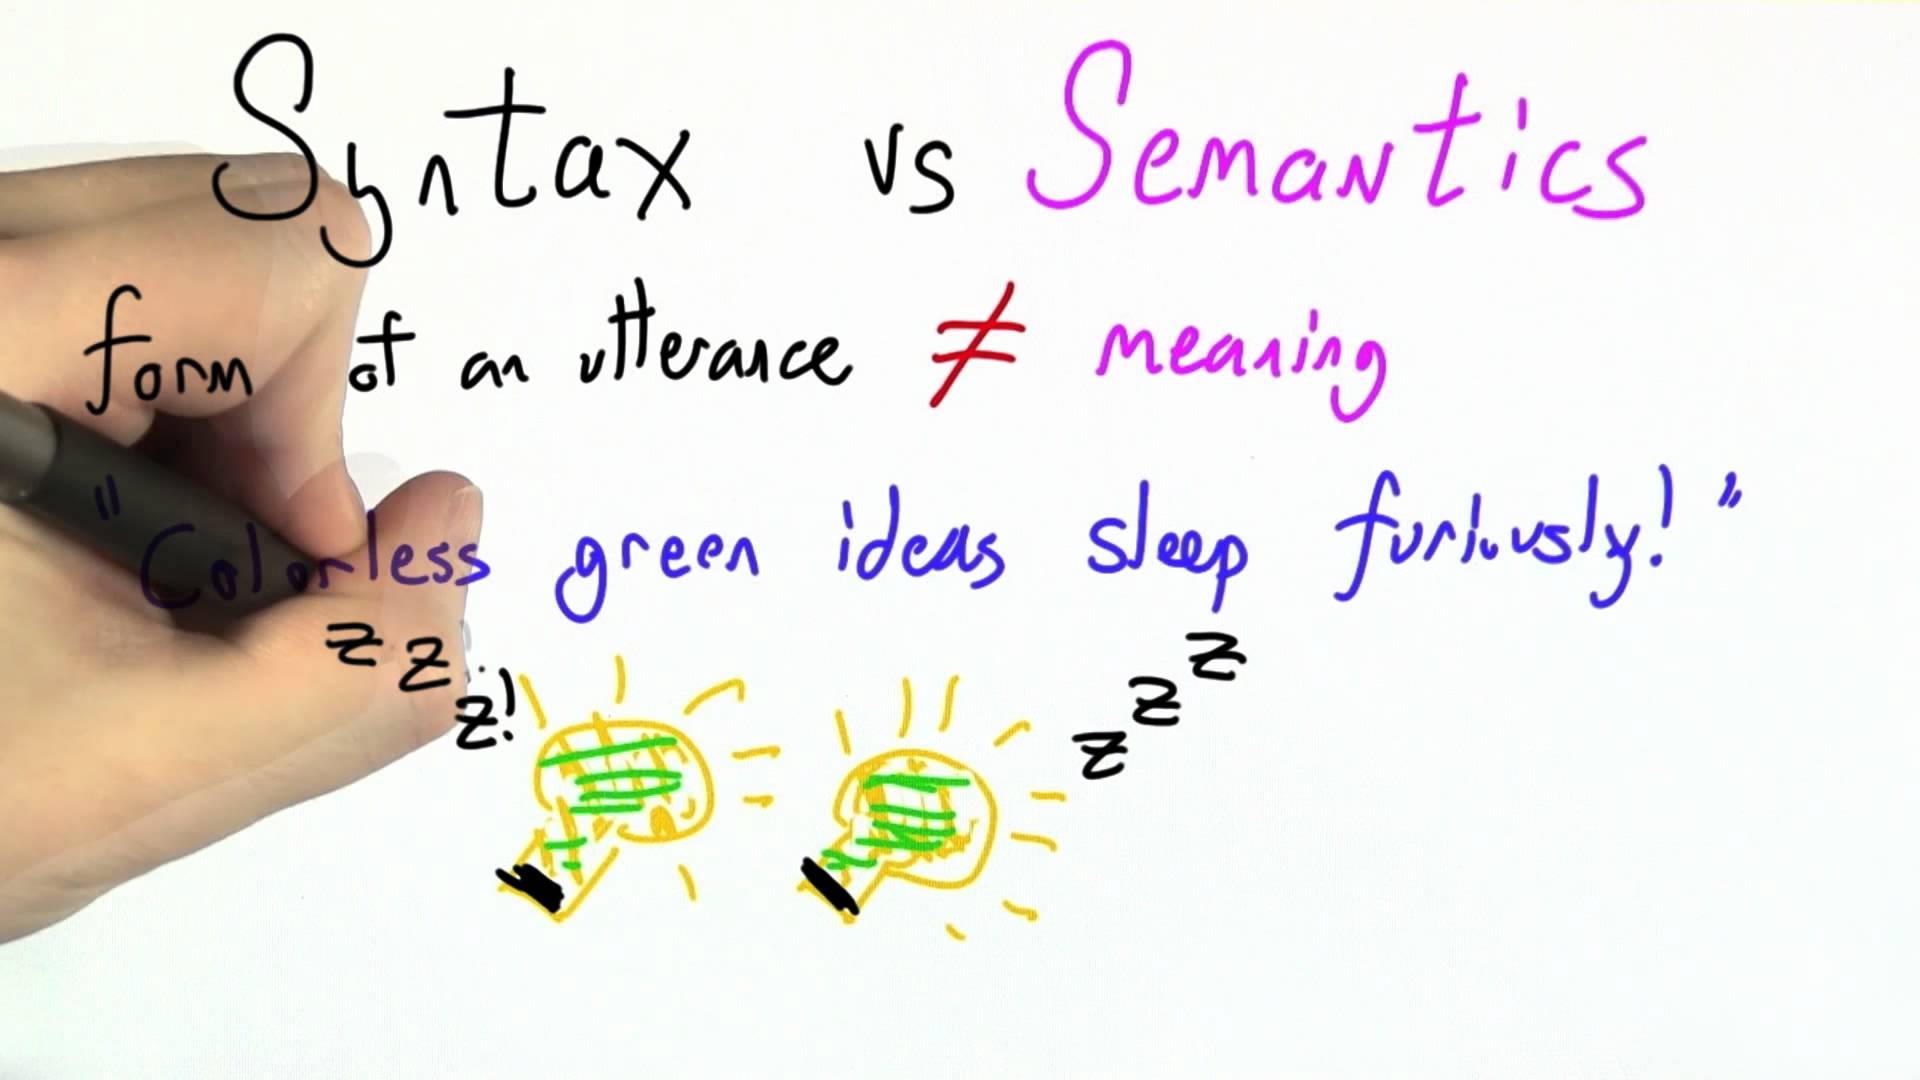 Syntax vs Semantics
form of an utterance ≠ meaning
"Colorless green ideas sleep furiously!"
z z z!
z z z